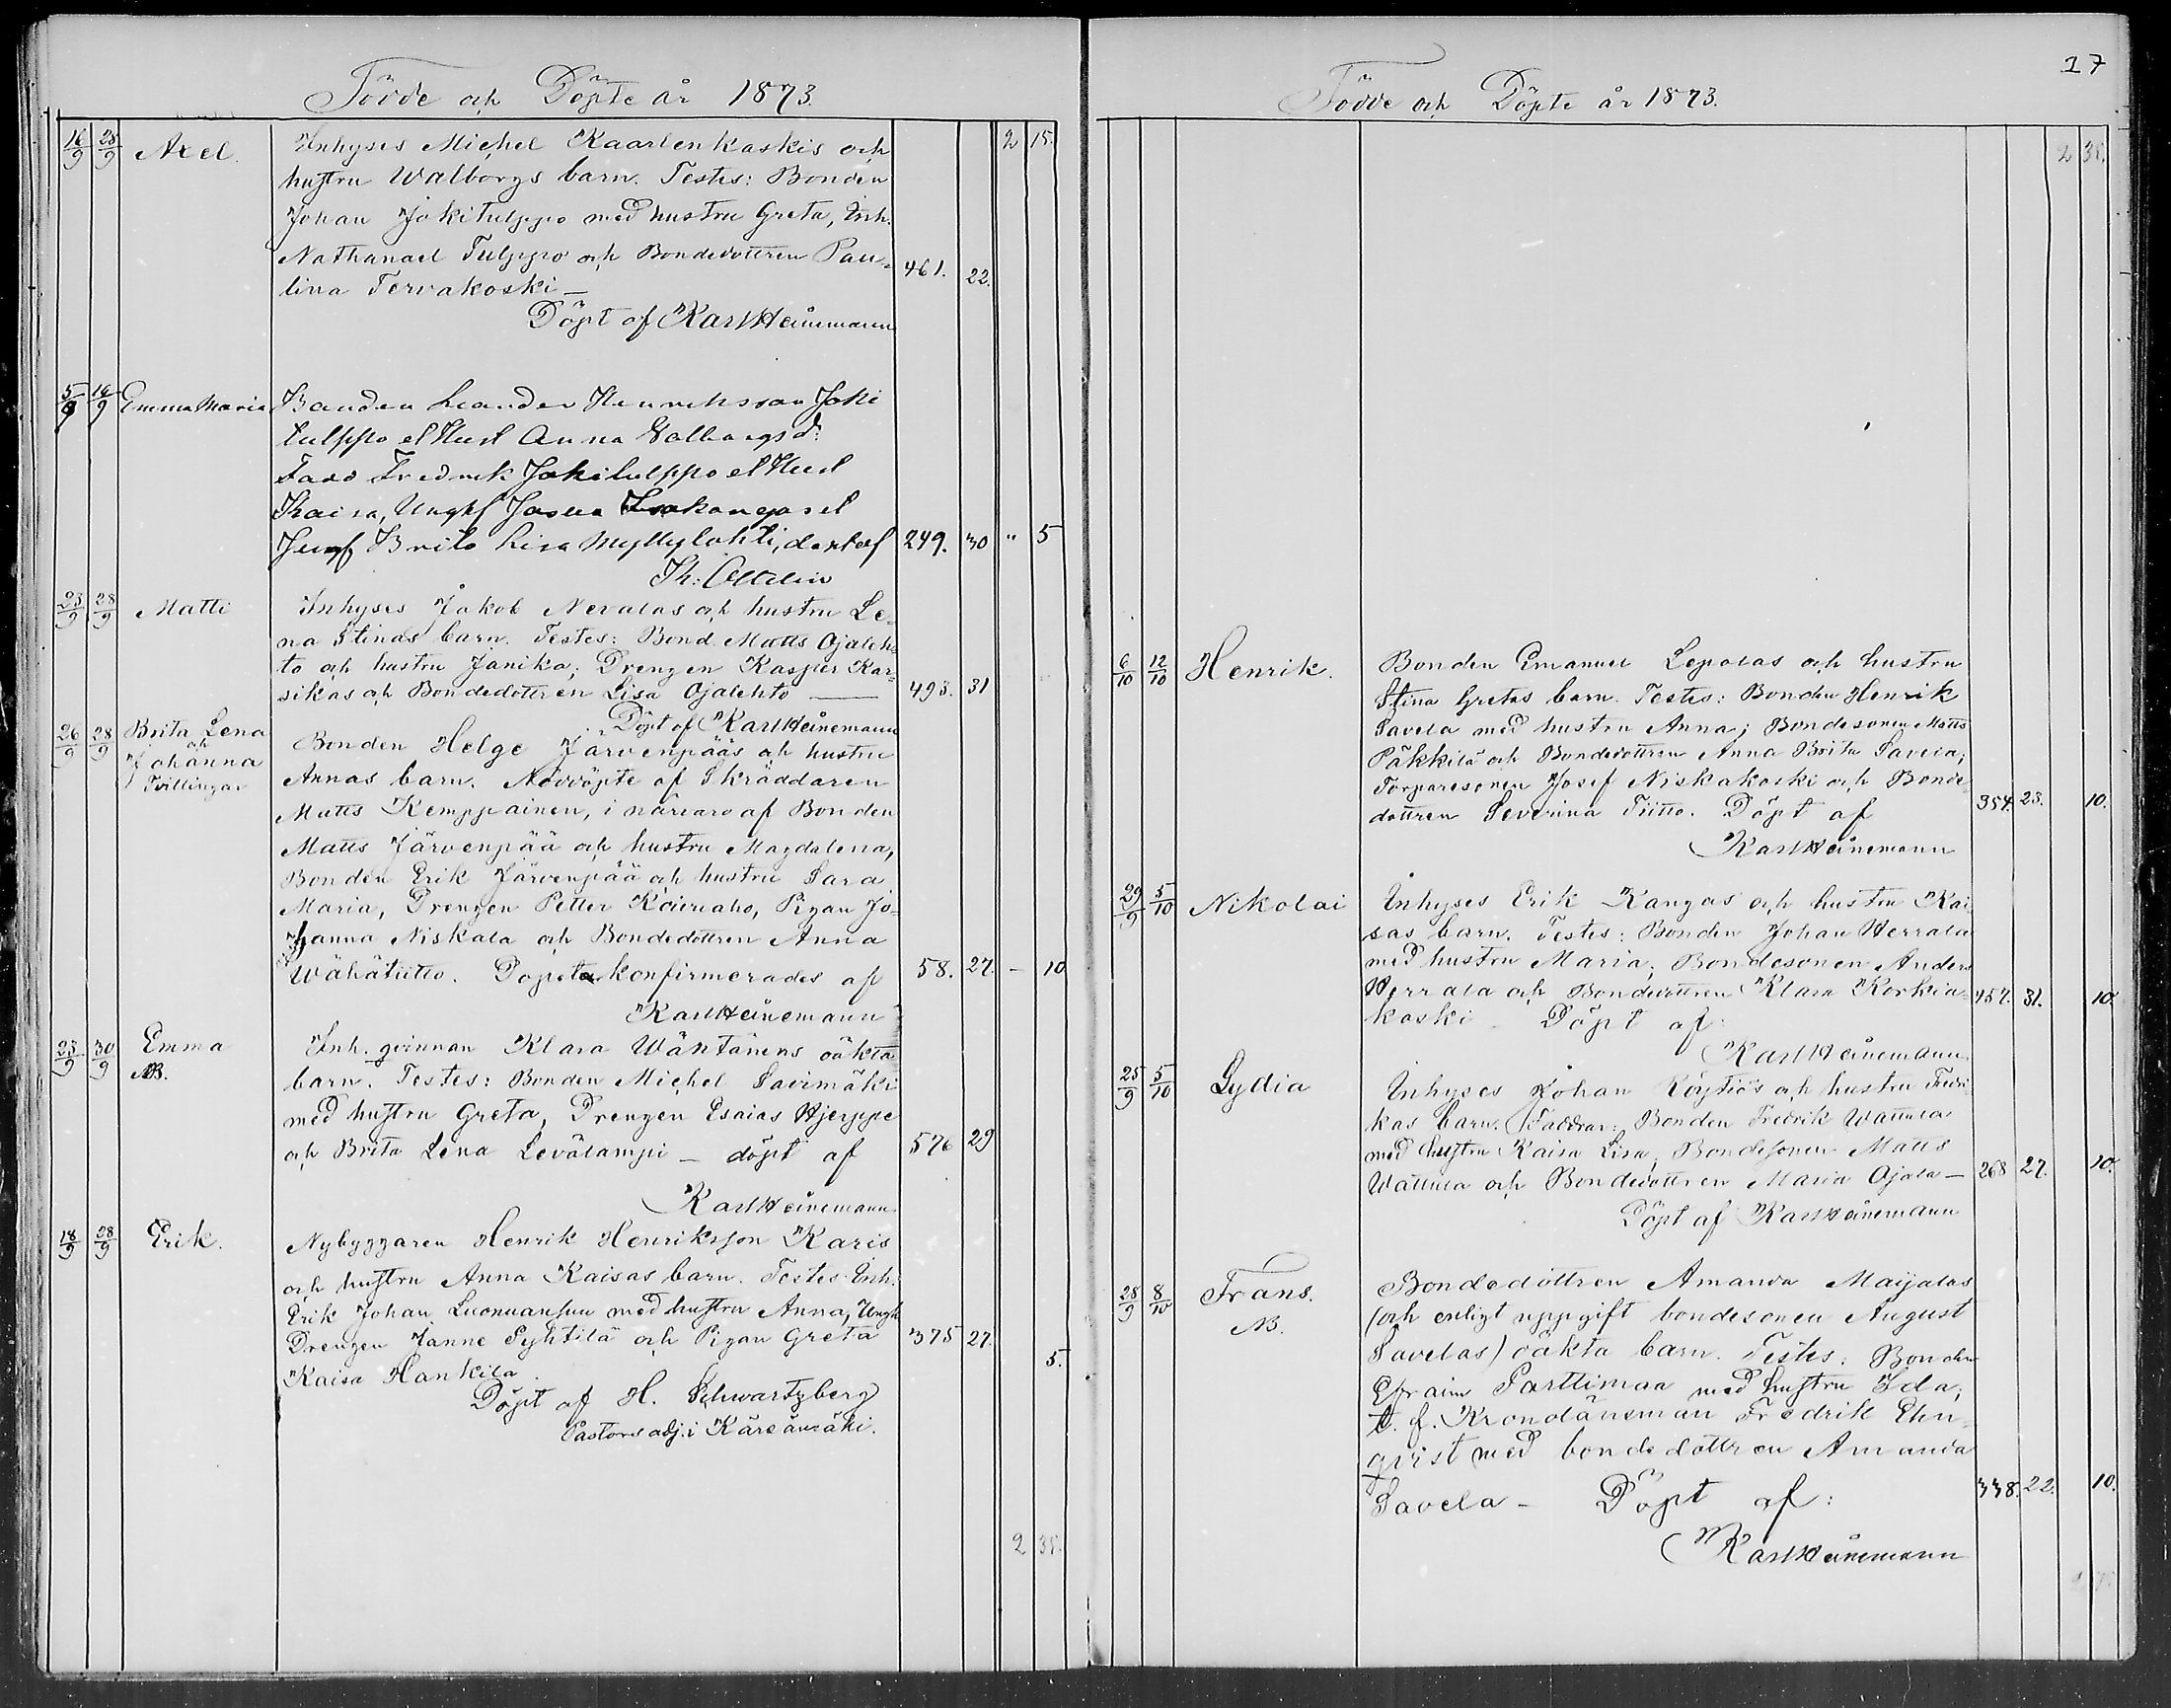 Födde och Döpte år 1873.
16/9 28/9 Axel. Inhyses Michel Kaarlenkaskis och 2 15.
hustru Walborgs barn. Testes: Bonden
Johan Jokitulppo med hustru Greta, Inh.
Nathanael Tulppo och Bondedottren Pau-
lina Tervakoski— 461. 22.
Döpt af Karl Heinemann
5/9 14/9 Emma Maria Bonden Leander Henriksson Joki
tulppo et Hust Anna Valborgs d:
Fadd Fredrik Jokitulppo et Hust
Kaisa, Ungkl Josua Isokangas et
Jungf Brita Lisa Myllylahti, döpt af 249. 30 " 5
Th:
23/9 28/9 Matti Inhyses Jakob Nevalas och hustru Le-
na Stinas barn. Testes: Bond. Matts Ojaleh-
to och hustru Janika; Drengen Kasper Kar-
sikas och Bondedottren Lisa Ojalehto — 493. 31
Döpt af Karl Heinemann
26/9 28/9 Brita Lena och Johanna Tvillingar
Bonden Helge Järvenpääs och hustru
Annas barn. Nöddöpte af Skräddaren
Matts Kemppainen, i närvaro af Bonden
Matts Järvenpää och hustru Magdalena,
Bonden Erik Järvenpää och hustru Sara
Maria, Drengen Petter Koivuaho, Pigan Jo-
hanna Niskala och Bondedottren Anna
Wähätiitto. Dopet konfirmerades af 58. 27. - 10
Karl Heinemann
23/9 30/9 Emma NB. Inh. qvinnan Klara Wäntänens oäkta
barn. Testes: Bonden Michel Savimäki
med hustru Greta, Drengen Esaias Hjerppe
och Brita Lena Levälampi — döpt af 576 29
Karl Heinemann
18/9 28/9 Erik. Nybyggaren Henrik Henriksson Karis
och hustru Anna Kaisas barn. Testes Inh.
Erik Johan Luonuansuu med hustru Anna, Ungk
Drengen Janne Pyhtilä och Pigan Greta 375 27.
Kaisa Hankila. 5.
Döpt af H. Schwartzberg
Pastorsadj. i Kärsämäki.
2 35.
17
Födde och Döpte år 1873.
2 35.
6/10 12/10 Henrik. Bonden Emanuel Lepolas och hustru
Stina Gretas barn. Testes: Bonden Henrik
Savela med hustru Anna; Bondesonen Matts
Päkkilä och Bondedottren Anna Brita Savela;
Torparesonen Josef Niskakoski och Bonde-
dottren Severina Tiitto. Döpt af 354. 23. 10.
Karl Heinemann
29/9 5/10 Nikolai Inhyses Erik Kangas och hustru Kai-
sas barn. Testes: Bonden Johan Herrala
med hustru Maria; Bondesonen Anders
Herrala och Bondedottren Klara Korkia- 457. 31. 10.
koski – Döpt af:
Karl Heinemann.
25/9 5/10 Lydia Inhyses Johan Röytiö's och hustru Fredri-
kas barn. Faddrar: Bonden Fredrik Wattula
med hustru Kaisa Lisa; Bondesonen Matts
Wattula och Bondedottren Maria Ojala — 268 27. 10.
Döpt af Karl Heinemann
28/9 8/10 Frans. NB. Bondedottren Amanda Maijalas
(och enligt uppgift bondesonen August
Savelas) oäkta barn. Testes: Bonden
Efraim Parttimaa med hustru Ida;
t. f. Kronolänsman Fredrik Ehn-
qvist med bondedottren Amanda
Savela – Döpt af: 338. 22. 10.
Karl Heinemann